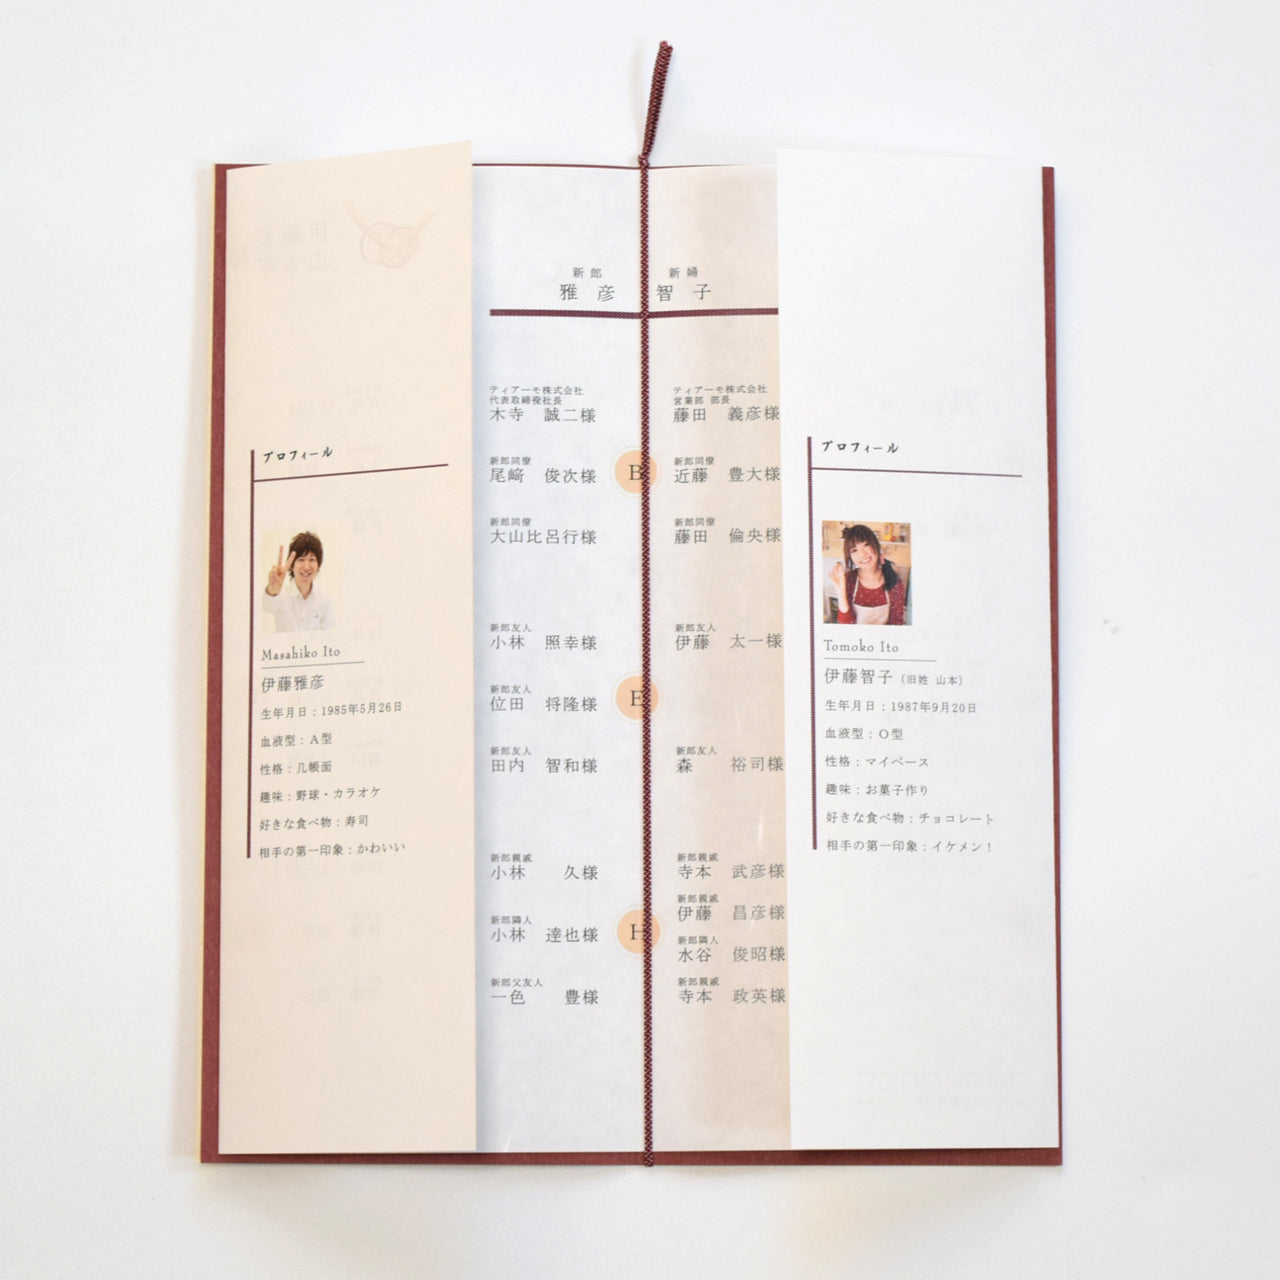 プロフィール
Masahiko Ito
伊藤雅彦
生年月日：1985年5月26日
血液型：A型
性格：几帳面
趣味：野球・カラオケ
好きな食べ物：寿司
相手の第一印象：かわいい
新郎 新婦
雅彦 智子
ティアーモ株式会社
代表取締役社長
木寺 誠二様
ティアーモ株式会社
営業部 部長
藤田 義彦様
新郎同僚
尾﨑 俊次様
B
新郎同僚
近藤 豊大様
新郎同僚
大山比呂行様
新郎同僚
藤田 倫央様
新郎友人
小林 照幸様
新郎友人
伊藤 太一様
新郎友人
位田 将隆様
E
新郎友人
田内 智和様
新郎友人
森 裕司様
新郎親戚
小林 久様
新郎親戚
寺本 武彦様
新郎親戚
伊藤 昌彦様
新郎隣人
小林 達也様
H
新郎隣人
水谷 俊昭様
新郎父友人
一色 豊様
新郎親戚
寺本 政英様
プロフィール
Tomoko Ito
伊藤智子（旧姓 山本）
生年月日：1987年9月20日
血液型：O型
性格：マイペース
趣味：お菓子作り
好きな食べ物：チョコレート
相手の第一印象：イケメン！